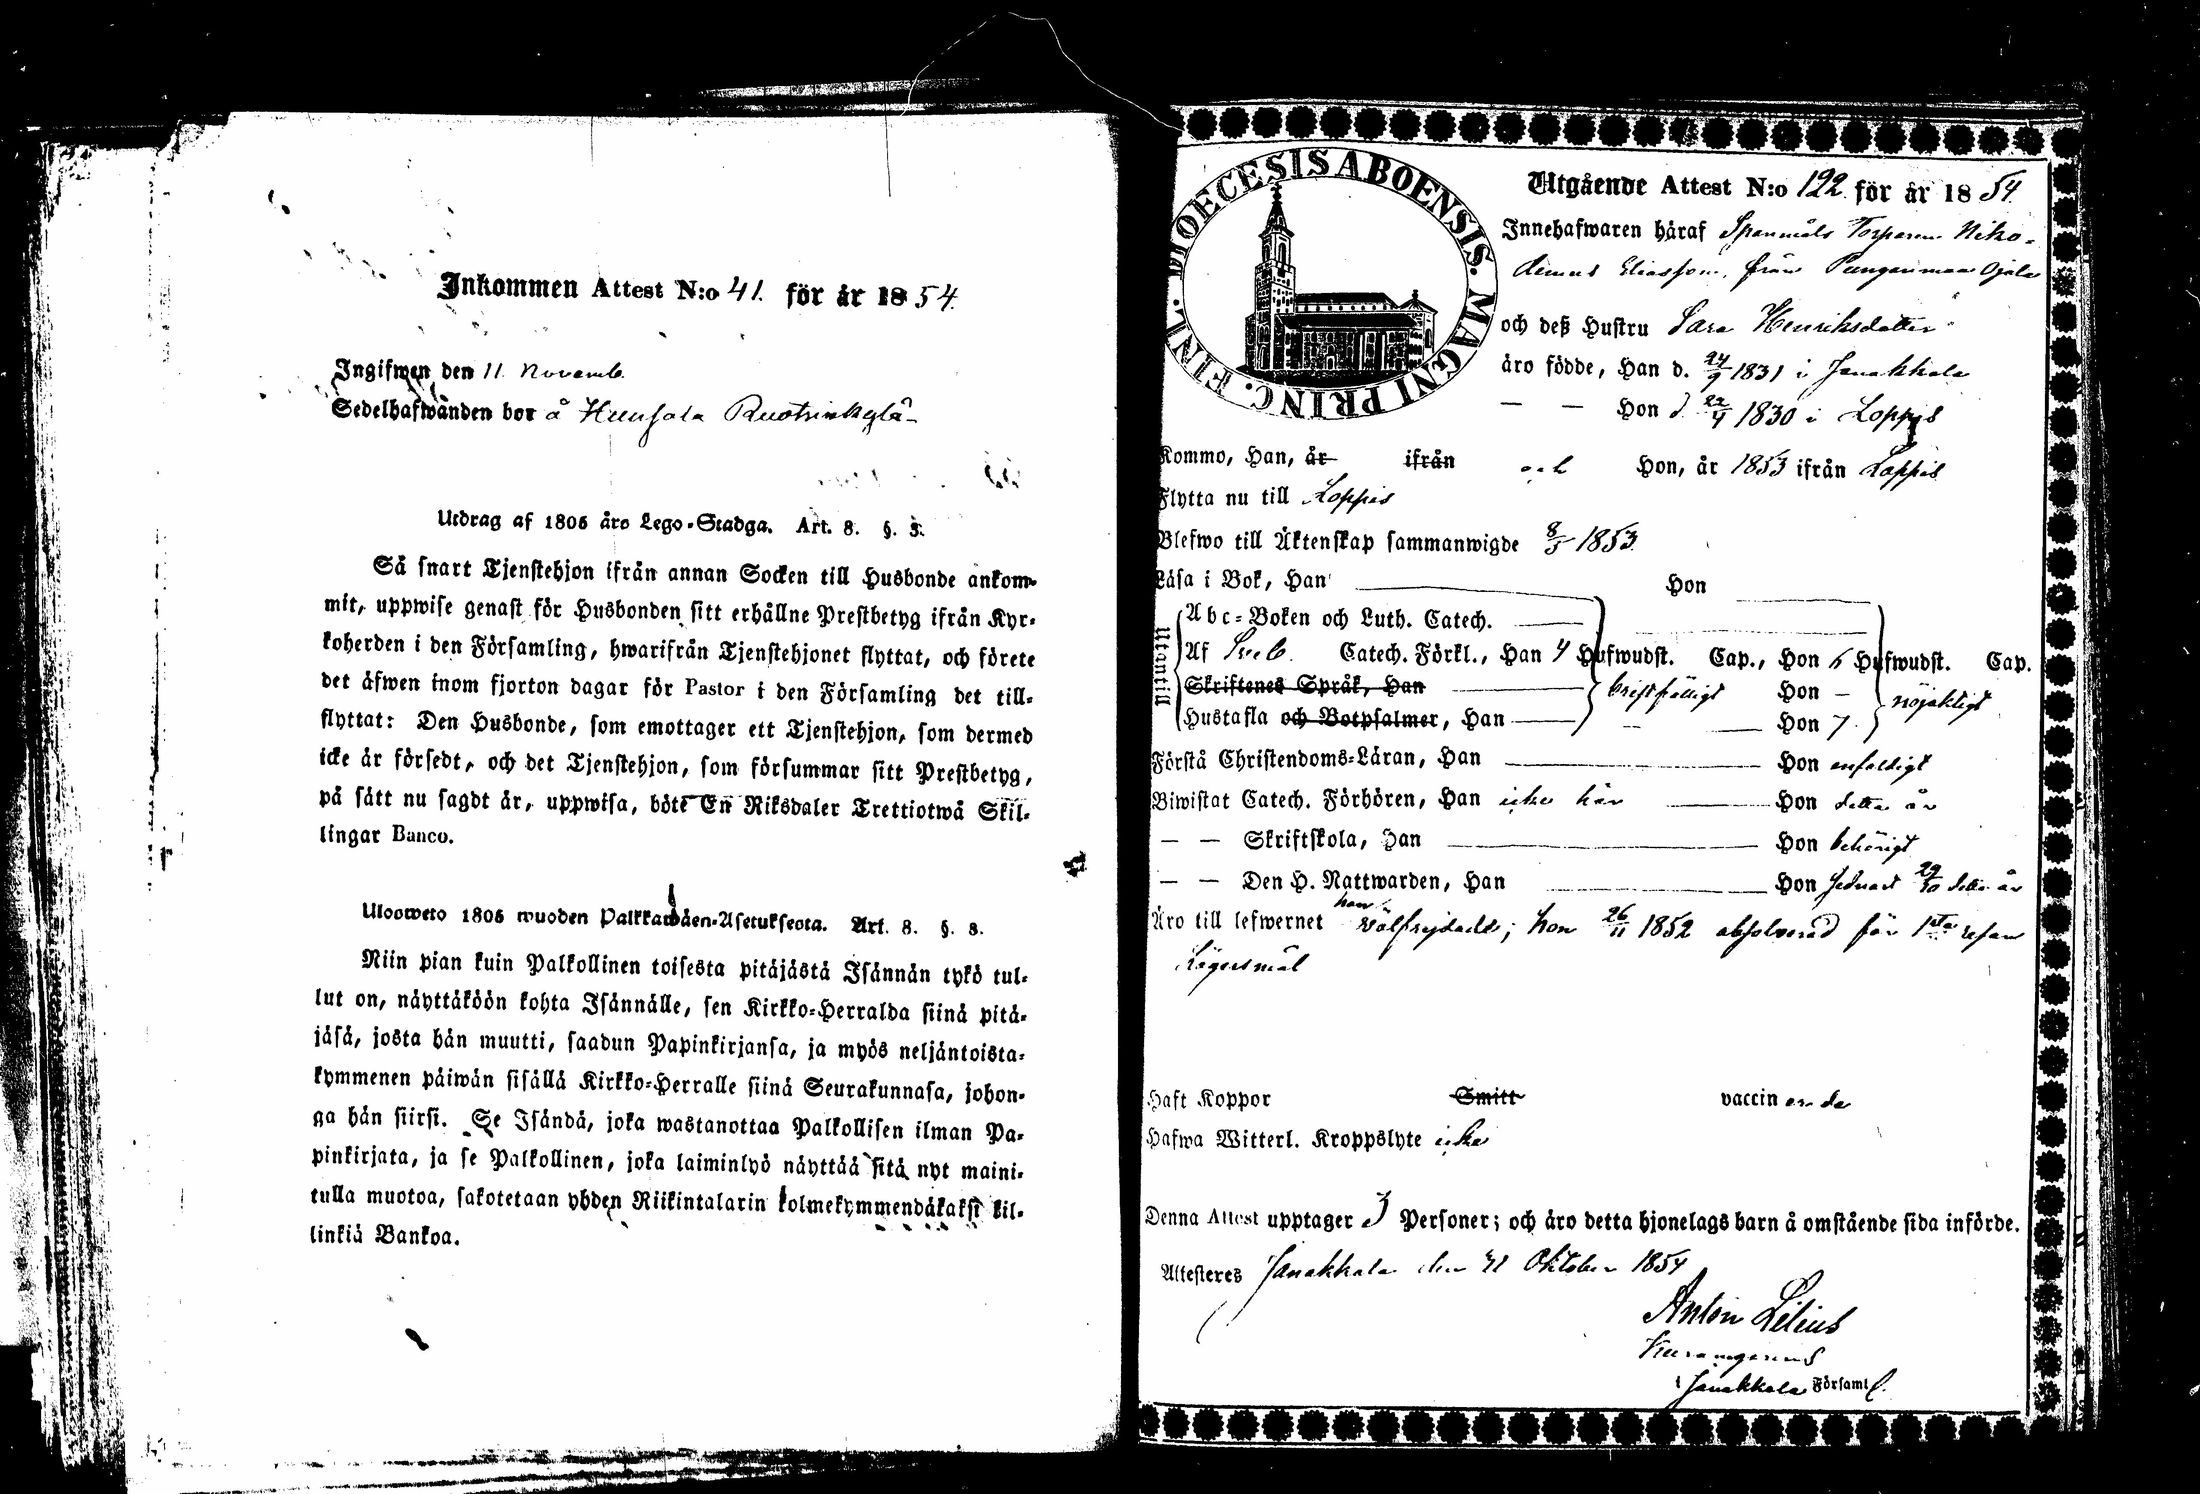 Inkommen Attest N:o 41. för år 1854.
Ingifwen den 11 Novemb.
Sedelhafwanden bor å Hunsala
Utdrag af 1805 års Lego-Stadga. Art. 8. §. 3.
Så snart Tjenstehjon ifrån annan Socken till Husbonde ankom-
mit, uppwise genast för Husbonden sitt erhållne Prestbetyg ifrån Kyr-
koherden i den Församling, hwarifrån Tjenstehjonet flyttat, och förete
det äfwen inom fjorton dagar för Pastor i den Församling det till-
flyttat: Den Husbonde, som emottager ett Tjenstehjon, som dermed
icke är försedt, och det Tjenstehjon, som försummar sitt Prestbetyg,
på sätt nu sagdt är, uppwisa, böte En Riksdaler Trettiotwå Skil-
lingar Banco.
Ulosweto 1805 wuoden Palkkawäen-Asetuksesta. Art. 8. §. 3.
Niin pian kuin Palkollinen toisesta pitäjästä Isännän tykö tul-
lut on, näyttäköön kohta Isännälle, sen Kirkko-Herralda siinä pitä-
jäsä, josta hän muutti, saadun Papinkirjansa, ja myös neljäntoista-
kymmenen päiwän sisällä Kirkko-Herralle siinä Seurakunnasa, johon-
ga hän siirsi. Se Isändä, joka wastanottaa Palkollisen ilman Pa-
pinkirjata, ja se Palkollinen, joka laiminlyö näyttää sitä nyt maini-
tulla muotoa, sakotetaan yhden Riikintalarin kolmekymmendäkaksi kil-
linkiä Bankoa.
DIOECESIS ABOENSIS. MAGNI PRINC. FINL.
Utgående Attest N:o 122 för år 1854.
Innehafwaren häraf Spanmåls Torparen Niko-
demus Eliasson, från Punganmaa Ojala
och deß Hustru Sara Henriksdotter
äro födde, Han d. 24/9 1831 i Janakkala
— — Hon d 22/4 1830 i Loppis
Kommo, Han, år ifrån och Hon, år 1853 ifrån Loppis
Flytta nu till Loppis
Blefwo till Äktenskap sammanwigde 8/5 1853.
Läsa i Bok, Han Hon
Utantill
Abc-Boken och Luth. Catech.
Af Sveb. Catech. Förkl., Han 4 Hufwudst. Cap., Hon 6 Hufwudst. Cap.
Skriftenes Språk, Han bristfälligt Hon — nöjaktigt
Hustafla och Botpsalmer, Han — Hon 7
Förstå Christendoms-Läran, Han Hon enfaldigt
Biwistat Catech. Förhören, Han icke här Hon detta år
— — Skriftskola, Han Hon behörigt
— — Den H. Nattwarden, Han Hon sednast 29/10 detta år
Äro till lefwernet han wälfrejdade; hon 26/11 1852 absolverad för 1sta resan
Lägersmål
Haft Koppor Smitt vaccinerade
Hafwa Witterl. Kroppslyte icke
Denna Attest upptager 3 Personer; och äro detta hjonelags barn å omstående sida införde.
Attesteres Janakkala den 31 Oktober 1854
Anton Lilius
i Janakkala Församl.